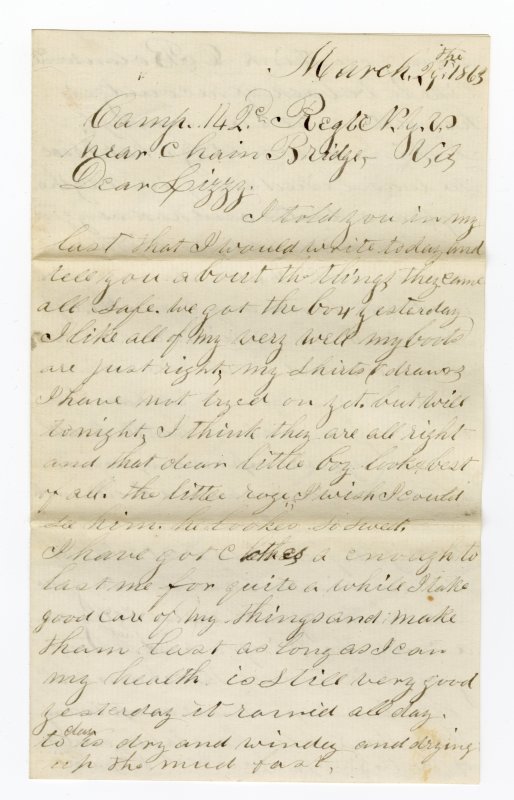 March, 29the 1863
Camp. 142cd Regt N.Y.V.
near Chain Bridge, V,a,
Dear Lizzy.
I told you in my
last that I would write today and
tell you about the things they came
all safe. we got the box yesterday
I like all of my very well my boots
are just right, my shirts & draws,
I have not tryed on yet. but will
tonight, I think they are all right
and that dear little boy looks best
of all. the little roge, I wish I could
see him. he looked so sweet.
I have got clothes a enough to
last me for quite a while I take
good care of my things and make
tham last as long as I can
my health is still very good
yesterday it rained all day.
to day is dry and windey and drying
up the mud fast,